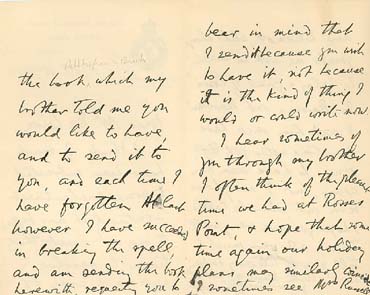 the book, which my
brother told me you
would like to have,
and to send it to
you, and each time I
have forgotten. At last
however I have succeeded
in breaking the spell,
and am sending the book
herewith, request you to
bear in mind that
I send it because you wish
to have it, not because
it is the kind of thing I
would or could write now.
I hear sometimes of
you through my brother
I often think of the pleasant
time we had at Rosses
Point, & hope that some
time again our holiday
plans may similarly coincide
I sometimes see Mrs Russell